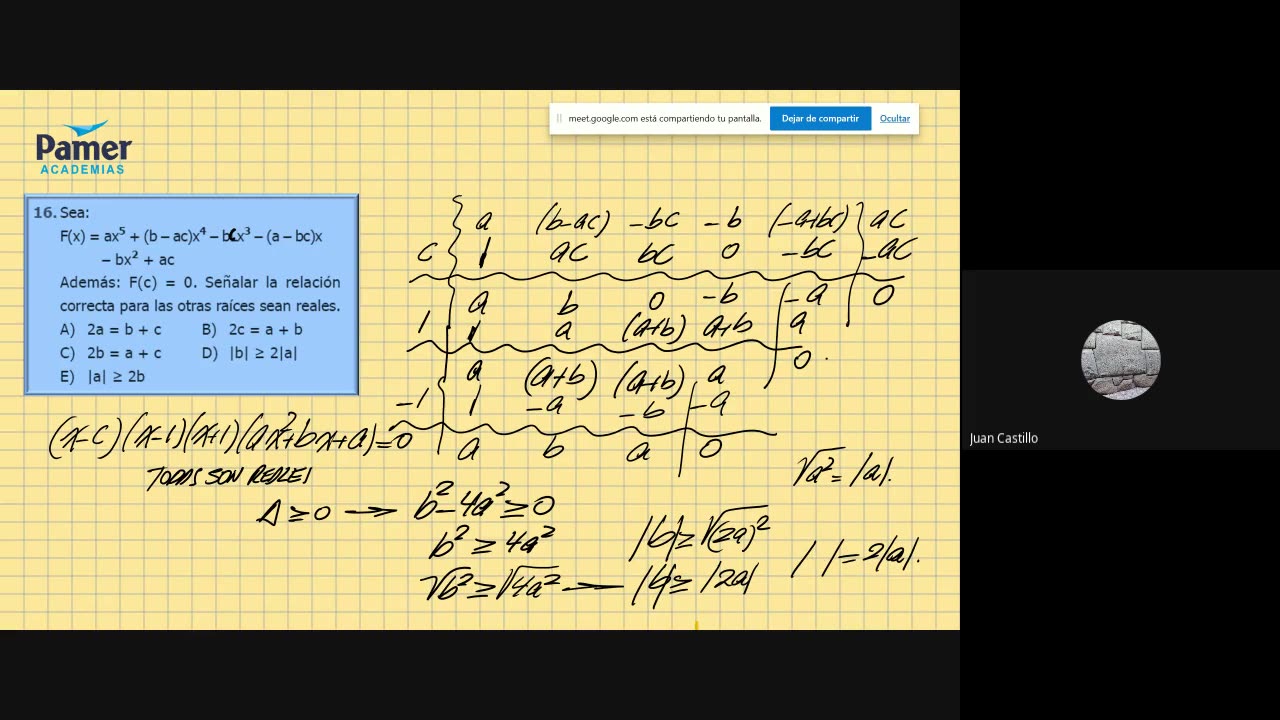 meet.google.com está compartiendo tu pantalla.
Dejar de compartir
Ocultar
Pamer
ACADEMIAS
16. Sea:
F(x) = ax⁵ + (b – ac)x⁴ – bcx³ – (a – bc)x
– bx² + ac
Además: F(c) = 0. Señalar la relación
correcta para las otras raíces sean reales.
A) 2a = b + c B) 2c = a + b
C) 2b = a + c D) |b| ≥ 2|a|
E) |a| ≥ 2b
a (b-ac) -bc -b (-a+bc) ac
c ac bc 0 -bc -ac
a b 0 -b -a 0
1 a (a+b) a+b a
a (a+b) (a+b) a 0
-1 -a -b -a
a b a 0
(x-c)(x-1)(x+1)(ax²+bx+a)=0
TODAS SON REALES
Δ≥0 → b²-4a²≥0
b² ≥ 4a²
√b² ≥ √4a² → |b| ≥ |2a|
√a² = |a|.
|b| ≥ √(2a)²
| |=2|a|.
Juan Castillo